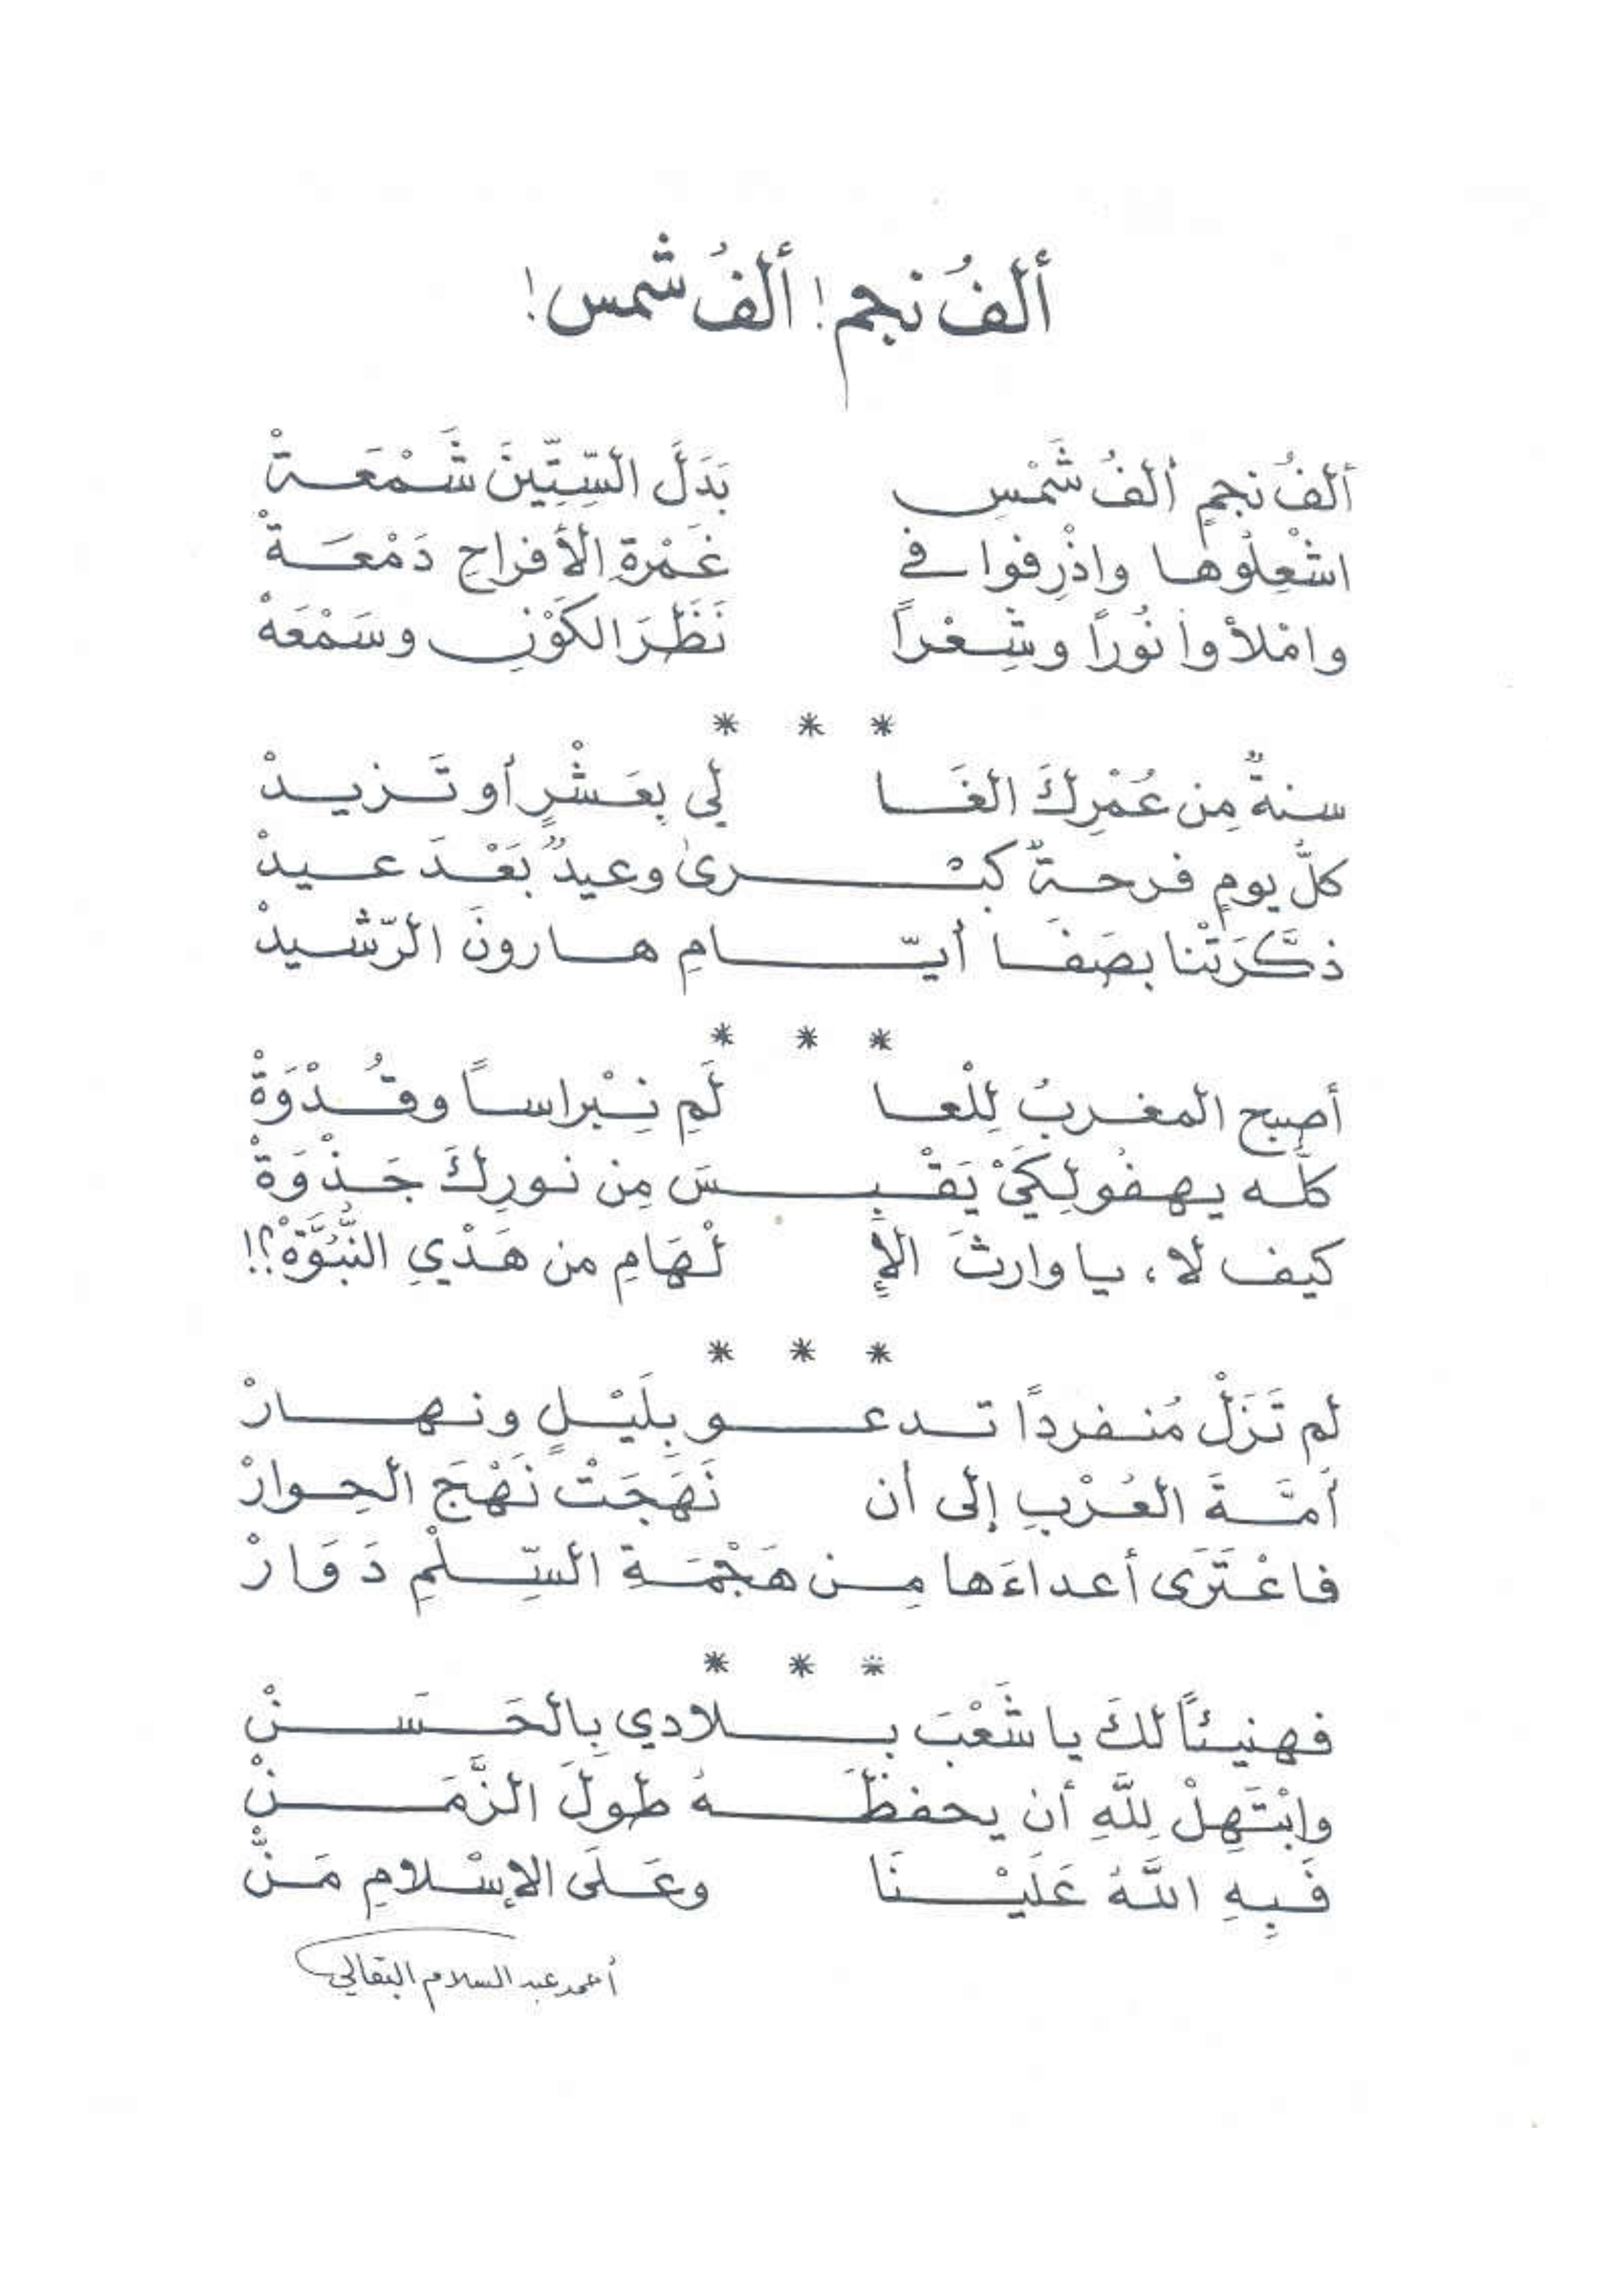 ألفُ نجم! ألفُ شمس!
ألفُ نجمٍ ألفُ شَمْسٍ بَدَلَ السِّتِّينَ شَمْعَةْ
اشْعِلُوها واذْرِفوا في غَمْرةِ الأفراحِ دَمْعَةْ
وامْلأوا نُوراً وشِعْراً نَظَرَ الكَوْنِ وسَمْعَهْ
* * *
سنةٌ مِن عُمْرِكَ الغَا لي بِعَشْرٍ أو تَزيدْ
كلُّ يومٍ فرحةٌ كبْرى وعيدٌ بَعْدَ عيدْ
ذكَّرَتْنا بصَفَا أيّامِ هارونَ الرّشيدْ
* * *
أصبح المغربُ لِلْعا لَمِ نِبْراساً وقُدْوَةْ
كلّه يهفُو لِكَيْ يَقْبِسَ مِن نورِكَ جَذْوَةْ
كيف لا، يا وارثَ الإِ لْهَامِ من هَدْيِ النُّبُوَّةْ؟!
* * *
لم تَزَلْ مُنفرداً تدعو بِلَيْلٍ ونهارْ
أمَّةَ العُرْبِ إلى أن نَهَجَتْ نَهْجَ الحِوارْ
فاعْتَرَى أعداءَها مِن هَجْمَةِ السِّلْمِ دَوَارْ
* * *
فهنيئاً لكَ يا شَعْبَ بلادي بِالحَسَنْ
وابْتَهِلْ لِلَّهِ أن يحفظَهُ طولَ الزَّمَنْ
فَبِهِ اللَّهُ عَلَيْنَا وعَلَى الإسْلامِ مَنّْ
أحمد عبد السلام البقالي